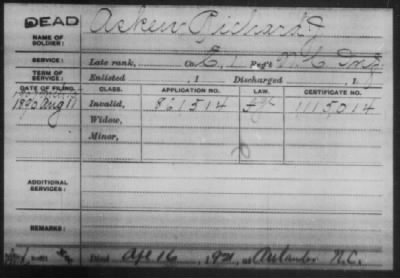 DEAD
Askew Richard J
NAME OF
SOLDIER:
SERVICE:
Late rank, Co. E, 1 Reg't N. C. Inf
TERM OF
SERVICE:
Enlisted , 1 Discharged , 1
DATE OF FILING. CLASS. APPLICATION NO. LAW. CERTIFICATE NO.
1890 Aug 11 Invalid, 861514 1115014
Widow,
Minor,
ADDITIONAL
SERVICES:
REMARKS:
Died Apr 16, 1921, at Aulander N.C.